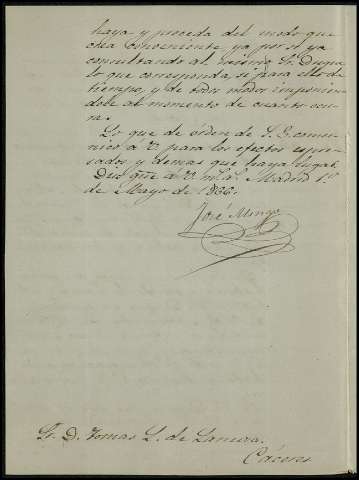 haya y proceda del modo que
crea conveniente, ya por si ya
consultando al mismo Sr. Duque
lo que corresponda, si para ello da
tiempo, y de todos modos imponien
dole al momento de cuanto ocur
ra.
Lo que de órden de S. E. comu
nico á V. para los efectos espre
sados y demas que haya lugar.
Dios gue á V. ms. as. Madrid 1.º
de Mayo de 1836.
José
Sr. D. Tomas L. de
Cáceres